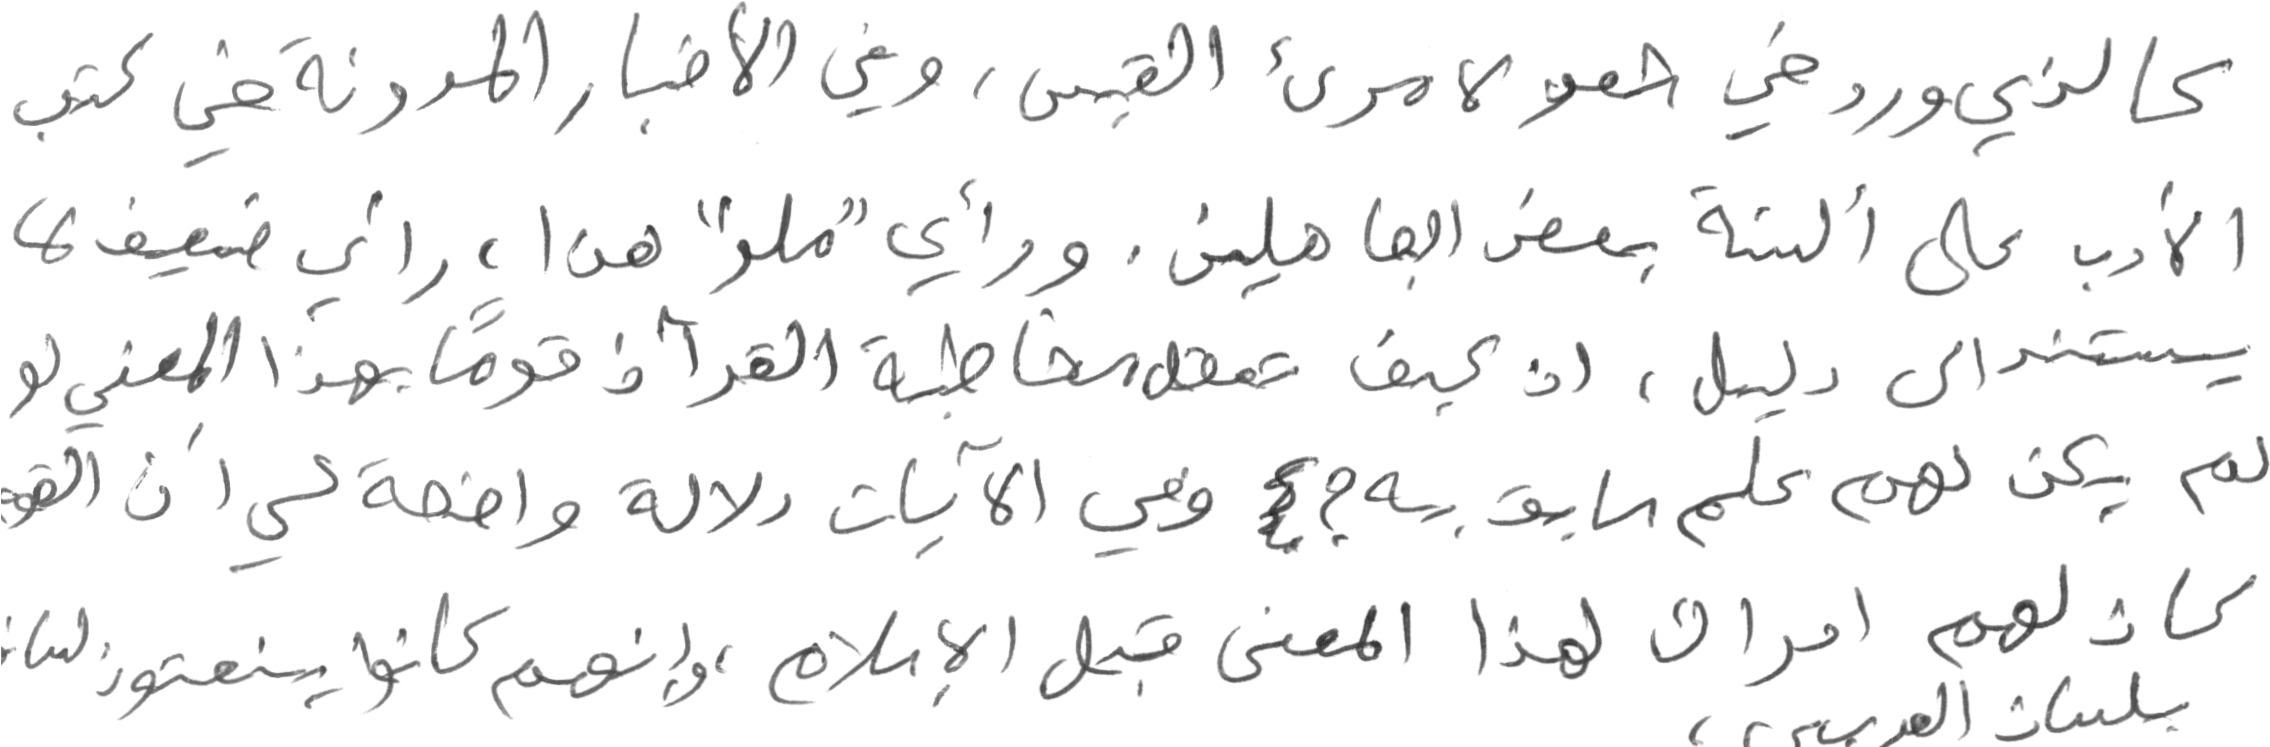 كالذي ورد في شعر لامرئ القيس، وفي الأخبار المدونة في كتب
الأدب على ألسنة بعض الجاهلين. ورأي "ملر" هذا، رأي ضعيف لا
يستند الى دليل، اذ كيف تعقل مخاطبة القرآن قومًا بهذا المعنى لو
لم يكن لهم علم سابق به؟ وفي الآيات دلالة واضحة على أن القوم
كان لهم ادراك لهذا المعنى قبل الإسلام، وانهم كانوا ينعتون لسانهم
بلسان العربي،